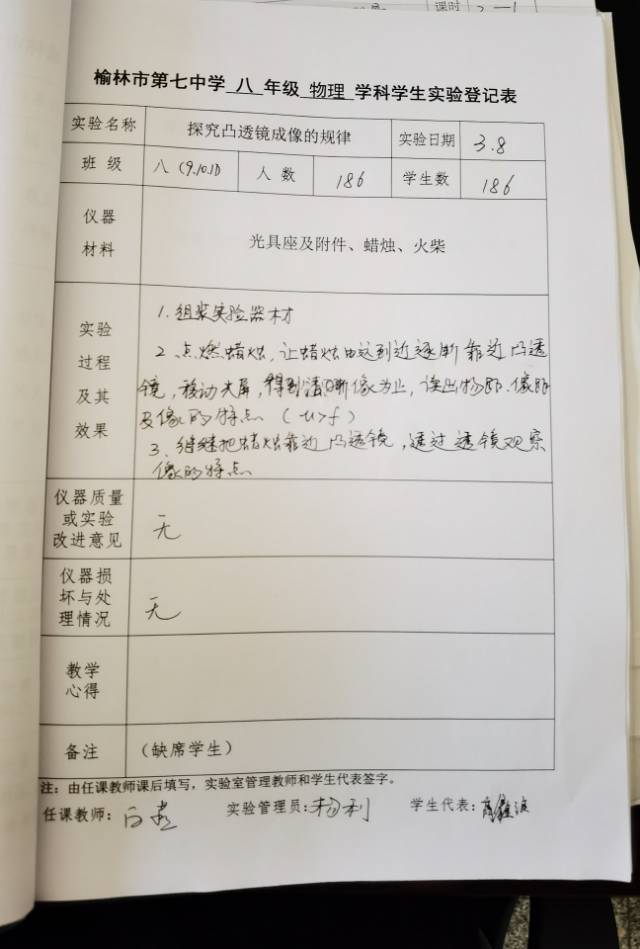 课时 2—1
榆林市第七中学 八 年级 物理 学科学生实验登记表
实验名称 探究凸透镜成像的规律 实验日期 3.8
班 级 八(9.10.11) 人 数 186 学生数 186
仪器
材料
光具座及附件、蜡烛、火柴
实验
过程
及其
效果
1.组装实验器材
2 点燃蜡烛,让蜡烛由远到近逐渐靠近凸透
镜,移动光屏,得到清晰像为止,读出物距、像距
及像的特点(u>f)
3、继续把蜡烛靠近凸透镜,通过透镜观察
像的特点
仪器质量
或实验
改进意见
无
仪器损
坏与处
理情况
无
教学
心得
备注 (缺席学生)
注:由任课教师课后填写,实验室管理教师和学生代表签字。
任课教师: 实验管理员:杨利 学生代表: